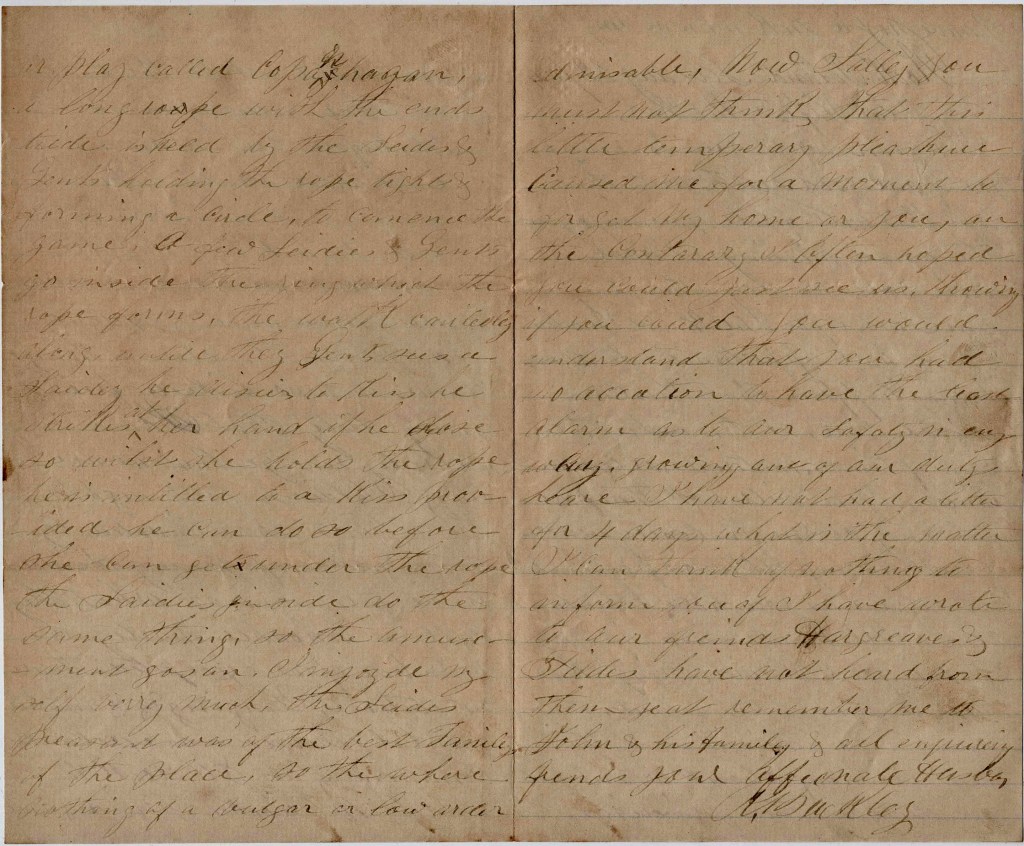 a play called Copenhagan,
a long roape with the ends
tiede is held by the Leides &
Gents holding the rope tight &
forming a Circle, to comence the
game, A few Leidies & Gents
go inside the ring which the
rope forms, the walk
along untile they Gent sees a
Laidey he wisies to Kiss he
stretkes at her hand if he chose
so whilst she holds the rope
he is intitled to a Kiss prov-
ided he can do so before
she can get under the rope
the Laidies inside do the
same thing, so the amuse-
-ment goes on. I injoyde my
self verry much, the Leides
preasant was of the best Familey
of the place, so the whare
nothing of a vulgar or low order
admisable, Now Salley you
must not think that this
little temporary pleashure
Caused me for a moment to
forget my home or you, on
the Contarary I Often hoped
you would just see us, knowing
if you could you would
understand that you had
no accation to have the least
alarm as to our Safaty in eny
way, growing out of our duty
heare I have not had a letter
for 4 days what is the matter
I can think of nothing to
inform you of I have wrote
to our freinds Hargreaves &
have not heard from
them yeat remember me to
John & his familey & all enquiring
frends your Affeonate Husban
R. Buckley